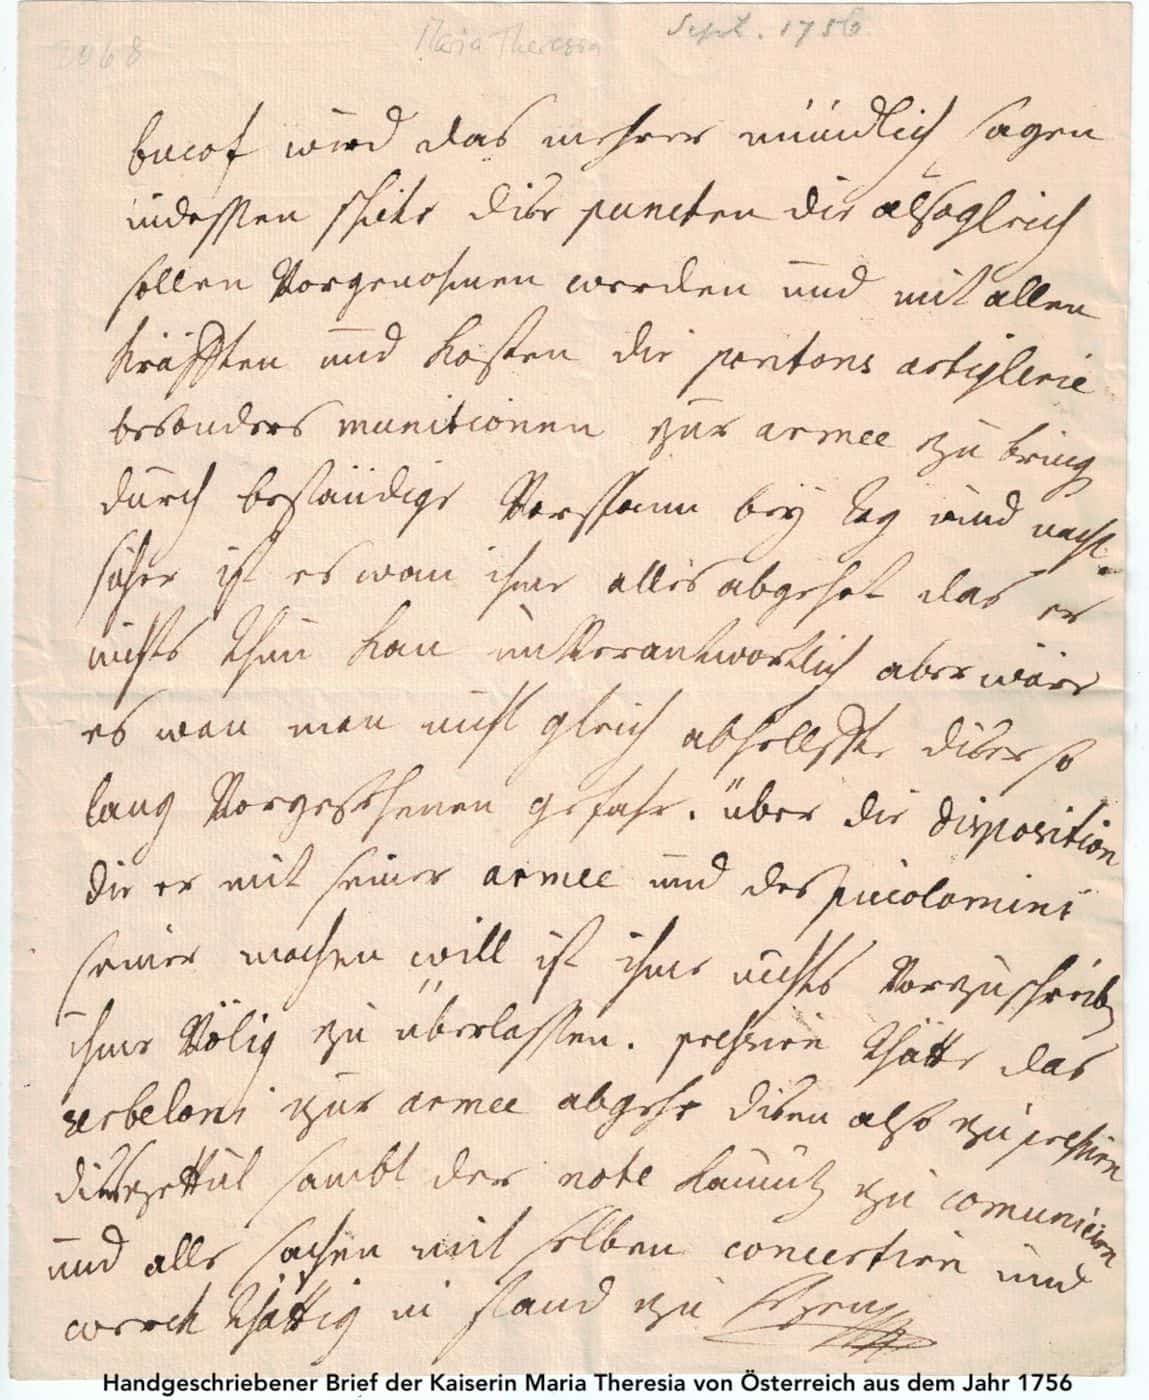 2068 Maria Theresia Sept. 1756
bucof wird das mehrer mündlich sagen
indessen schicke dise puncten die alsogleich
sollen Vorgenohmen werden und mit allen
kräfften und kosten die pontons artiglerie
besonders munitionen zur armee zu bring
durch beständige Vorspann bey tag und nacht.
sicher ist es wan ihme alles abgehet das er
nichts thun kan unVerantwortlich aber wäre
es wan man nicht gleich abhelffte diser so
lang Vorgesehenen gefahr. über die disposition
die er mit seiner armee und des picolomini
seiner machen will ist ihme nichts Vorzuschreib
ihme Völig zu überlassen. pressirn thätte das
serbeloni zur armee abgehe disen also zu pressirn
dises zettul sambt der note kaunitz zu comunicirn
und alle sachen mit selben concertirn und
werck thättig in stand zu sezen
Handgeschriebener Brief der Kaiserin Maria Theresia von Österreich aus dem Jahr 1756